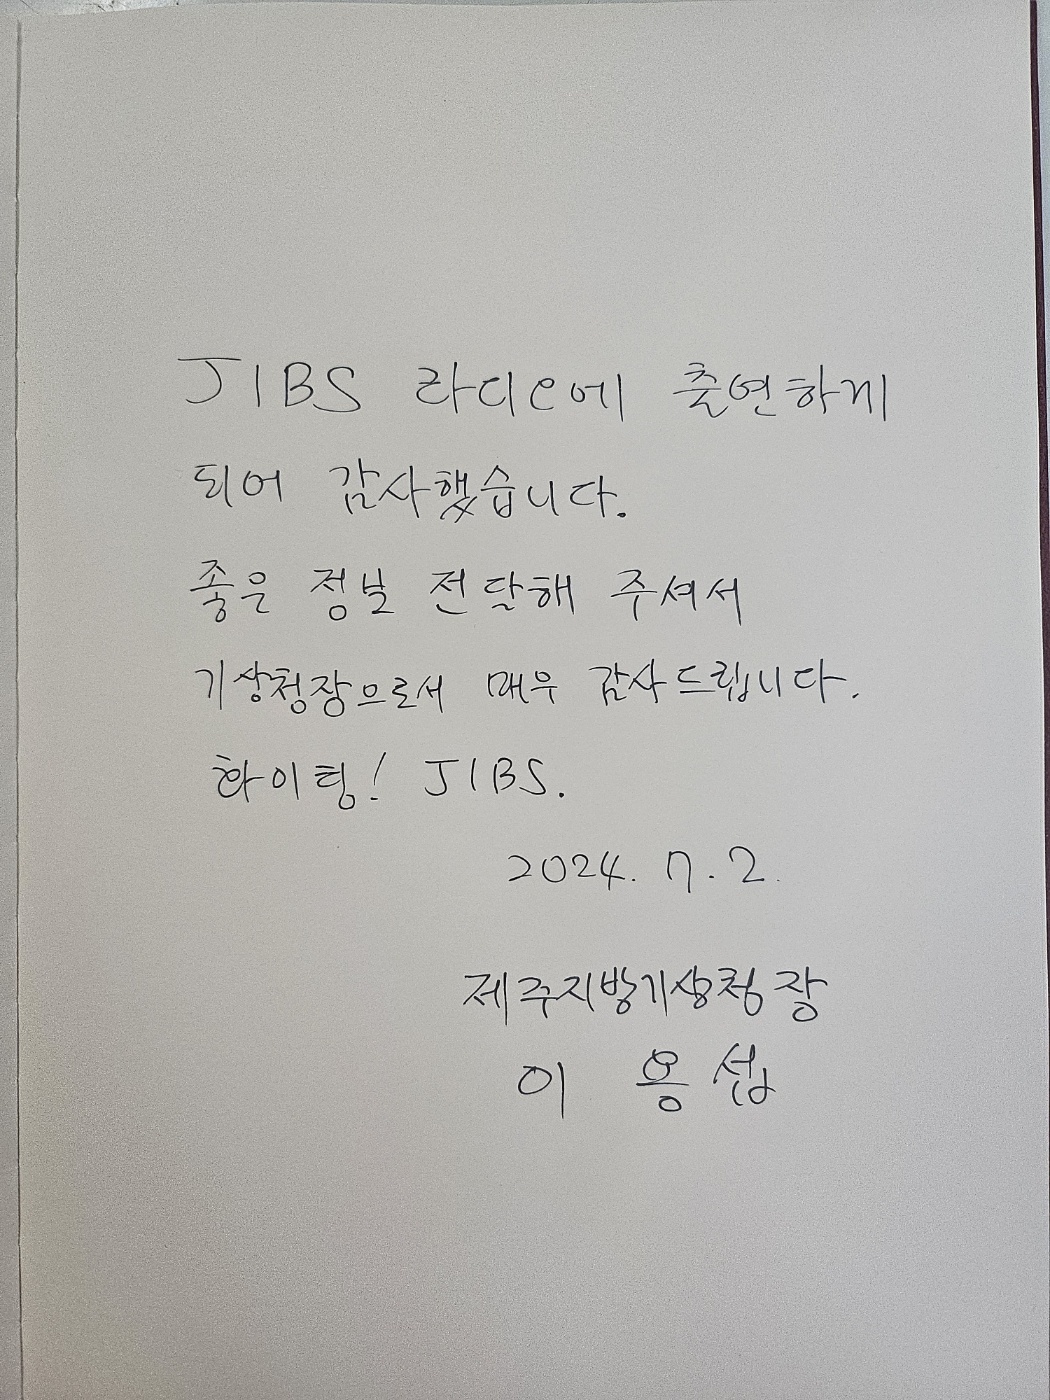 JIBS 라디오에 출연하게
되어 감사했습니다.
좋은 정보 전달해 주셔서
기상청장으로서 매우 감사드립니다.
화이팅! JIBS.
2024. 7. 2.
제주지방기상청장
이 용 섭